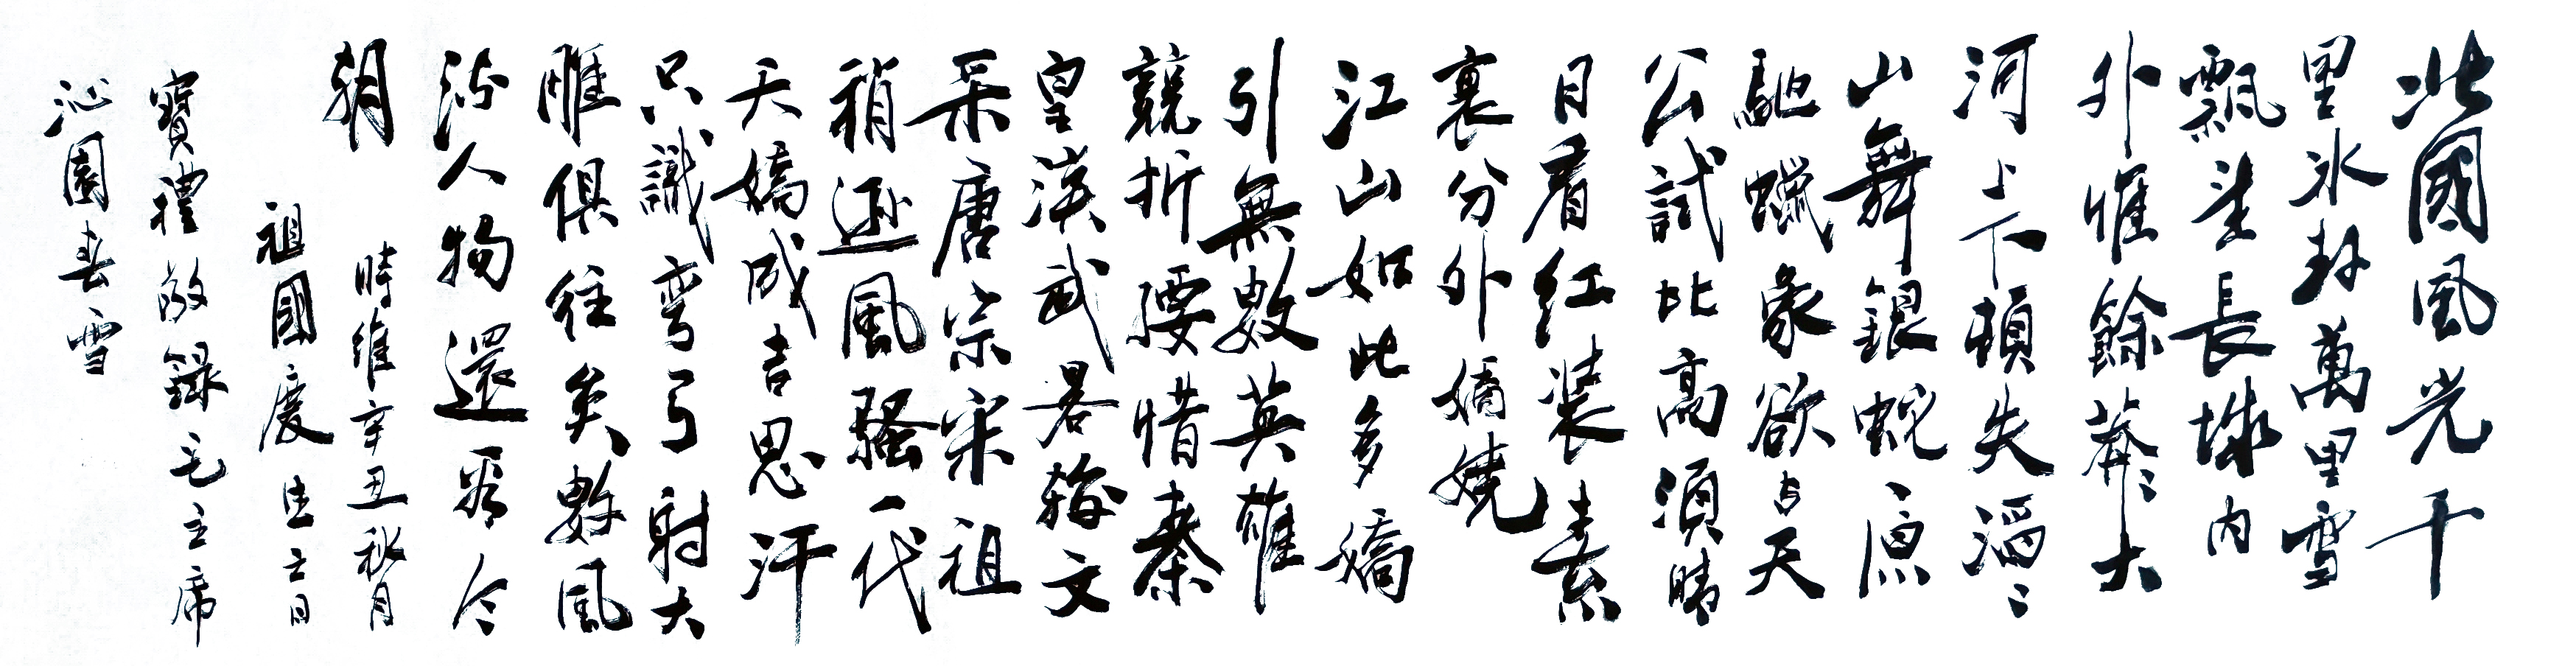 北國風光千
里冰封萬里雪
飄望長城內
外惟餘莽〻大
河上下頓失滔〻
山舞銀蛇原
馳蠟象欲与天
公試比高須晴
日看紅裝素
裹分外嬌嬈
江山如此多嬌
引無數英雄
競折腰惜秦
皇漢武畧輸文
采唐宗宋祖
稍遜風騷一代
天嬌成吉思汗
只識彎弓射大
雕俱往矣數風
流人物還看今
朝 時維辛丑秋月
祖國慶日
寶禮敬錄毛主席
沁園春雪